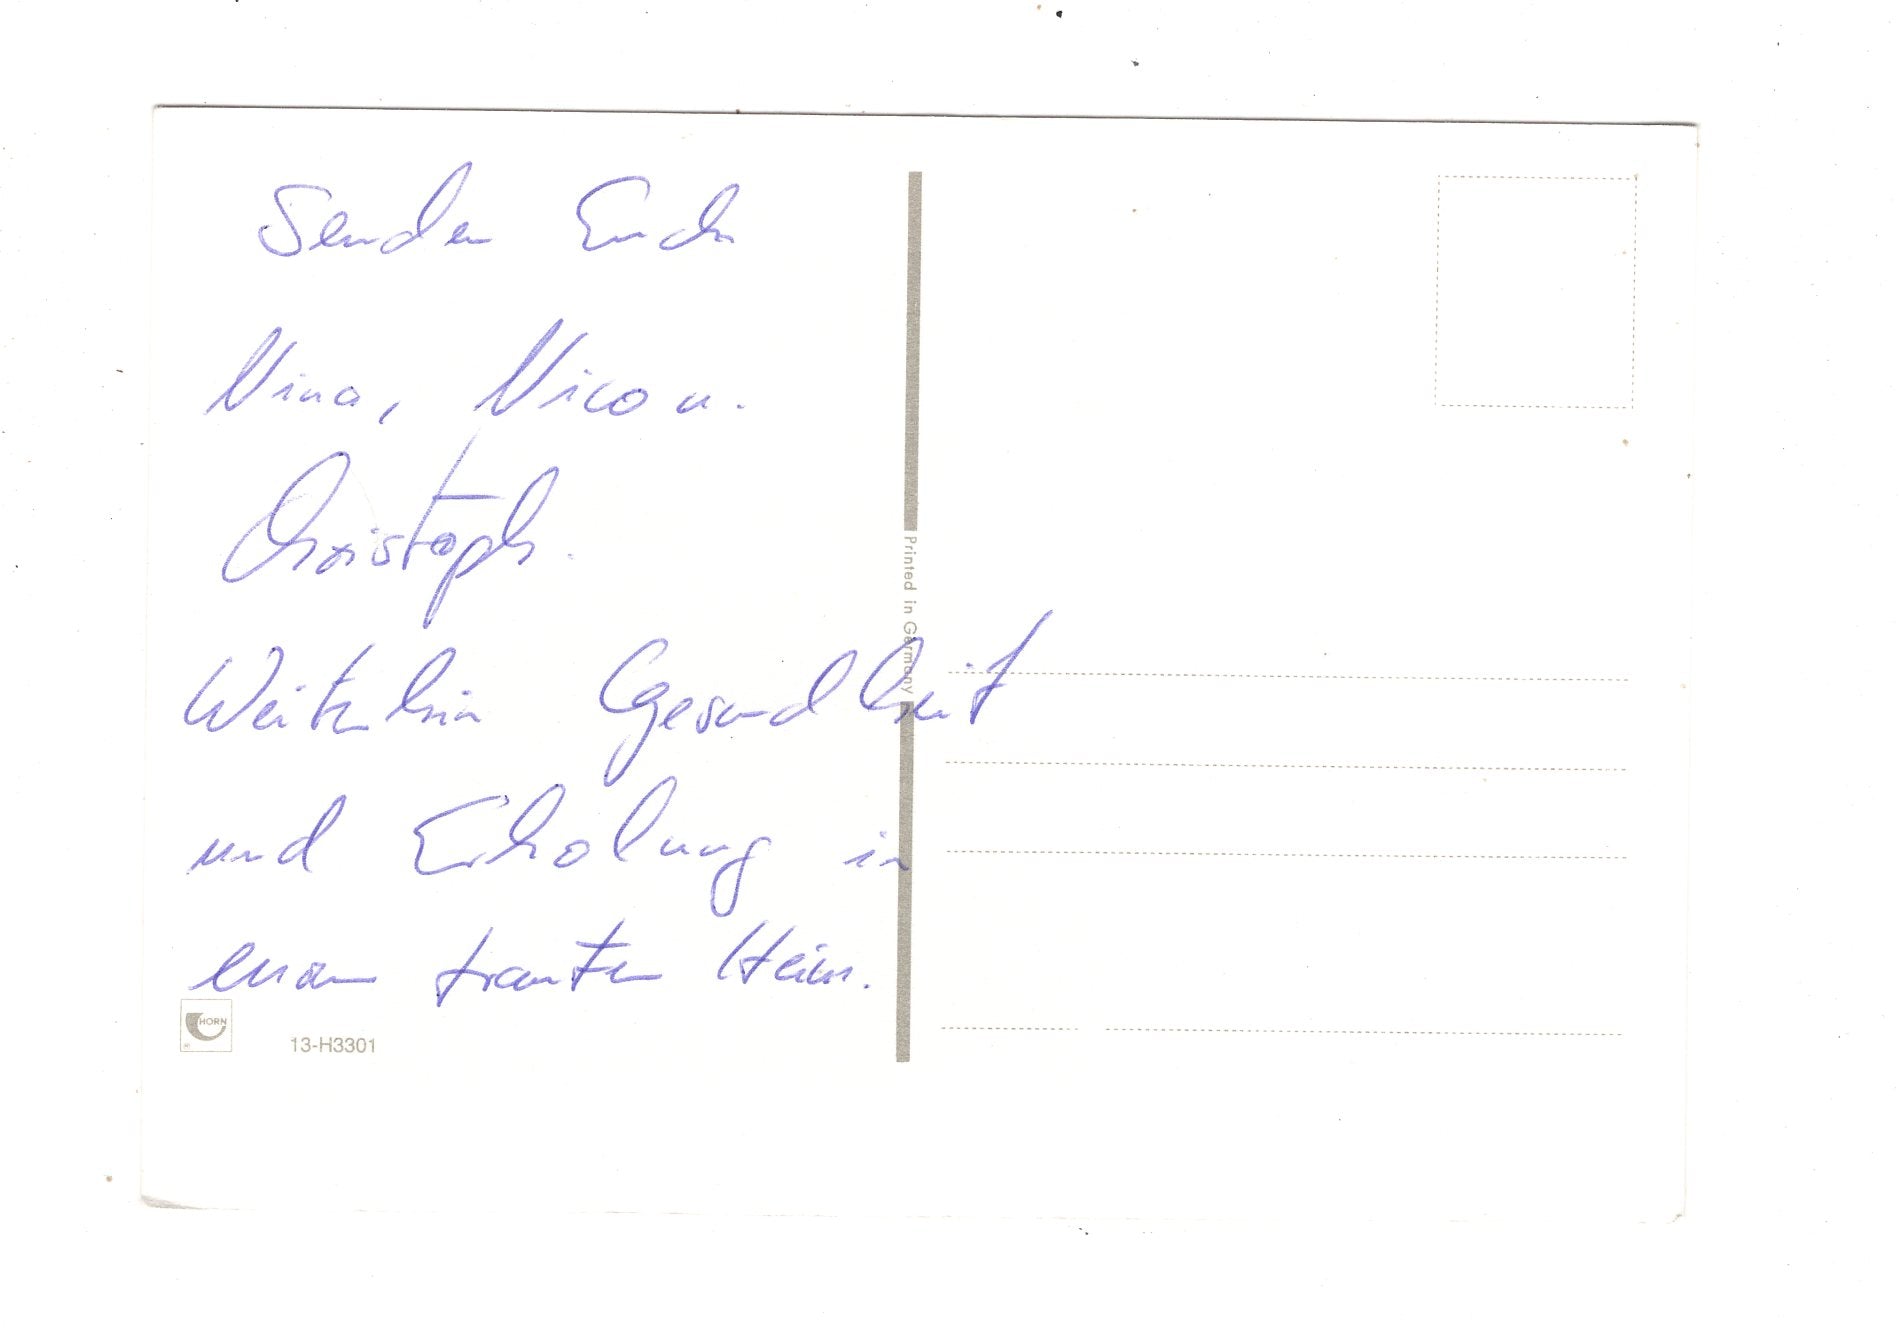 Senden Euch
Nina, Nico u.
Christoph.
Weiterhin Gesundheit
und Erholung in
eurem trauten Heim.
HORN
®
13-H3301
Printed in Germany